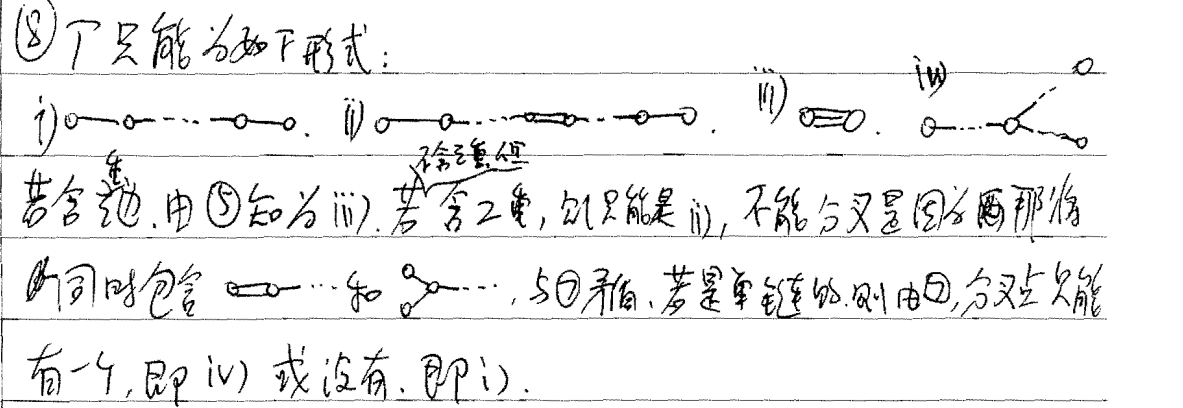 ⑧ Γ只能为如下形式:
i) ii) iii) iv)
若含三重边,由⑤知为iii).若不含三重但含2重,则只能是ii),不能分叉是因为那将
同时包含 … 和 …,与⑦矛盾.若是单链的,则由⑦,分叉点只能
有一个,即iv)或没有,即i).